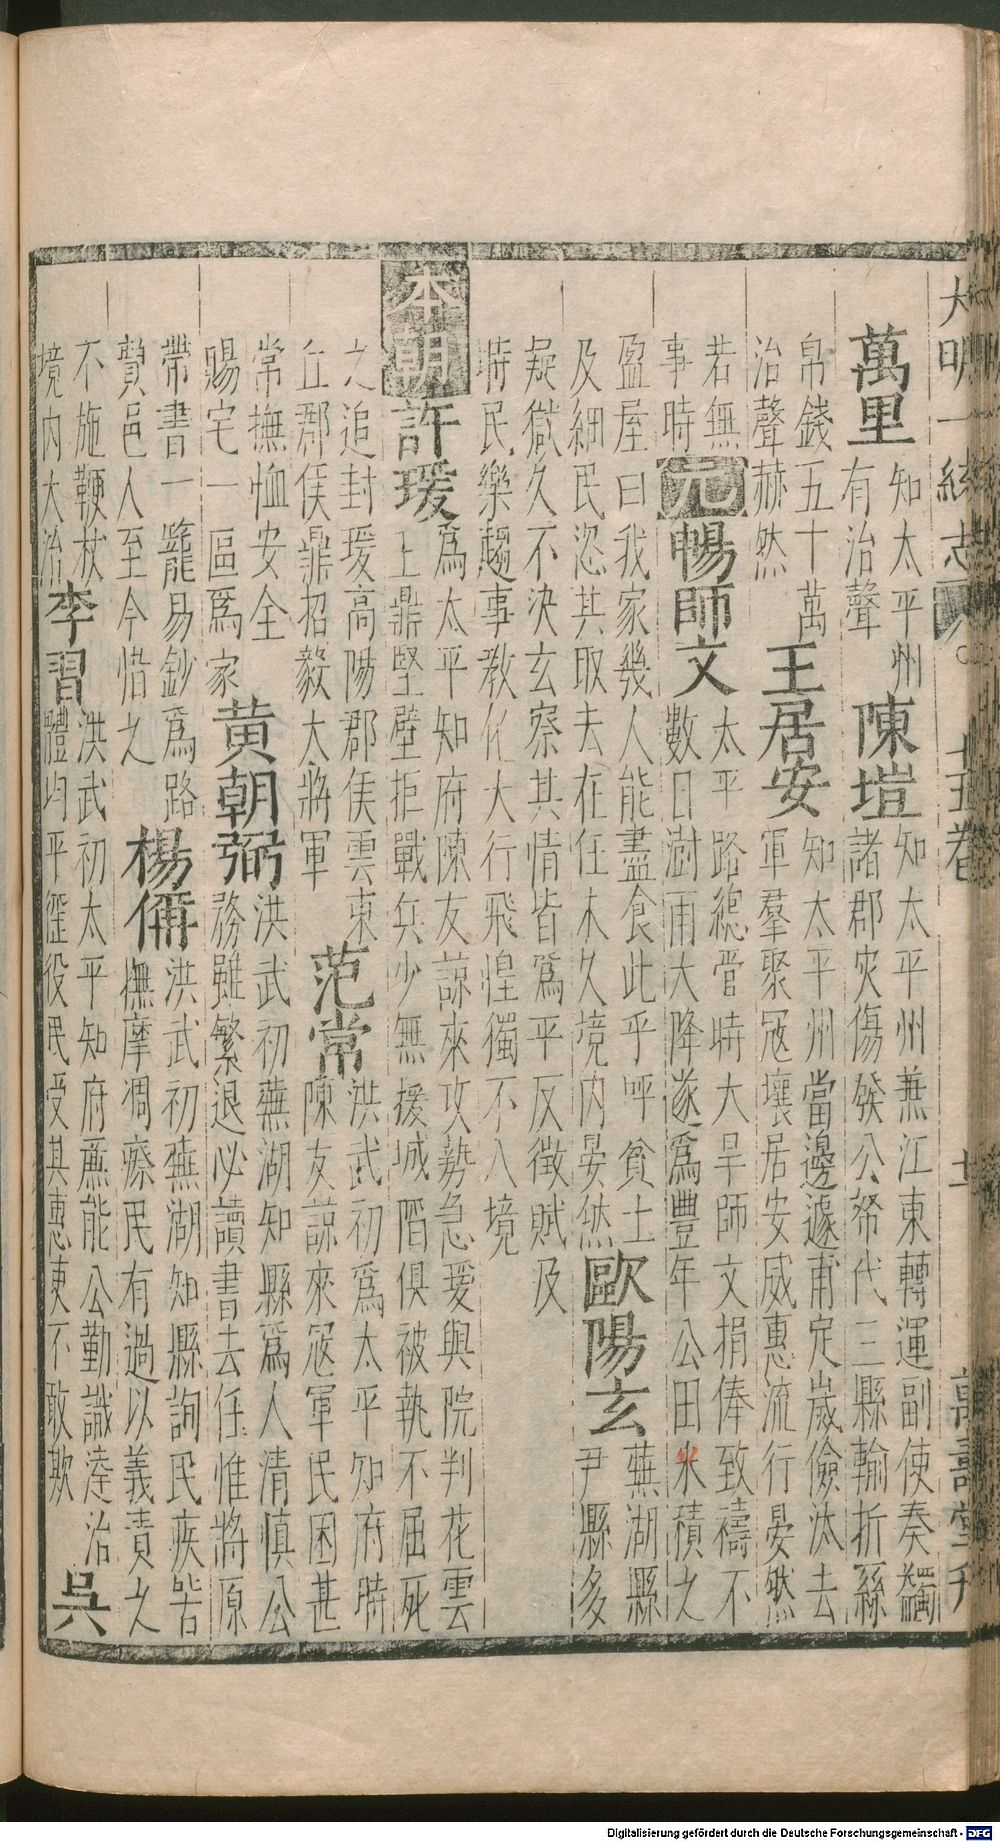 大明一統志 十五卷 十 萬壽堂刋
萬里
知太平州
有治聲
陳塏
知太平州兼江東轉運副使奏蠲
諸郡灾傷發公帑代三縣輸折絲
帛錢五十萬
治聲赫然
王居安
知太平州當邊遽甫定歲儉汰去
軍羣聚冦壤居安威惠流行晏然
若無
事時
元
暢師文
太平路總管時大旱師文捐俸致禱不
數日澍雨大降遂爲豐年公田米積之
盈屋曰我家幾人能盡食此乎呼貧士
及細民恣其取去在任未久境内晏然
歐陽玄
蕪湖縣
尹縣多
疑獄久不决玄察其情皆爲平反徵賦及
時民樂趨事教化大行飛蝗獨不入境
本朝
許瑗
爲太平知府陳友諒來攻勢急瑗與院判花雲
王鼎堅壁拒戰兵少無援城陷俱被執不屈死
之追封瑗高陽郡侯雲東
丘郡侯鼎招毅大將軍
范常
洪武初爲太平知府時
陳友諒來冦軍民困甚
常撫恤安全
賜宅一區爲家
黄朝弼
洪武初蕪湖知縣爲人清慎公
務雖繁退必讀書去任惟將原
帶書一簏易鈔爲路
贄邑人至今惜之
楊俻
洪武初蕪湖知縣詢民疾苦
撫摩凋瘵民有過以義責之
不施鞭杖
境内大治
李習
洪武初太平知府亷能公勤識達治
體均平徭役民受其惠吏不敢欺
吳
Digitalisierung gefördert durch die Deutsche Forschungsgemeinschaft - DFG